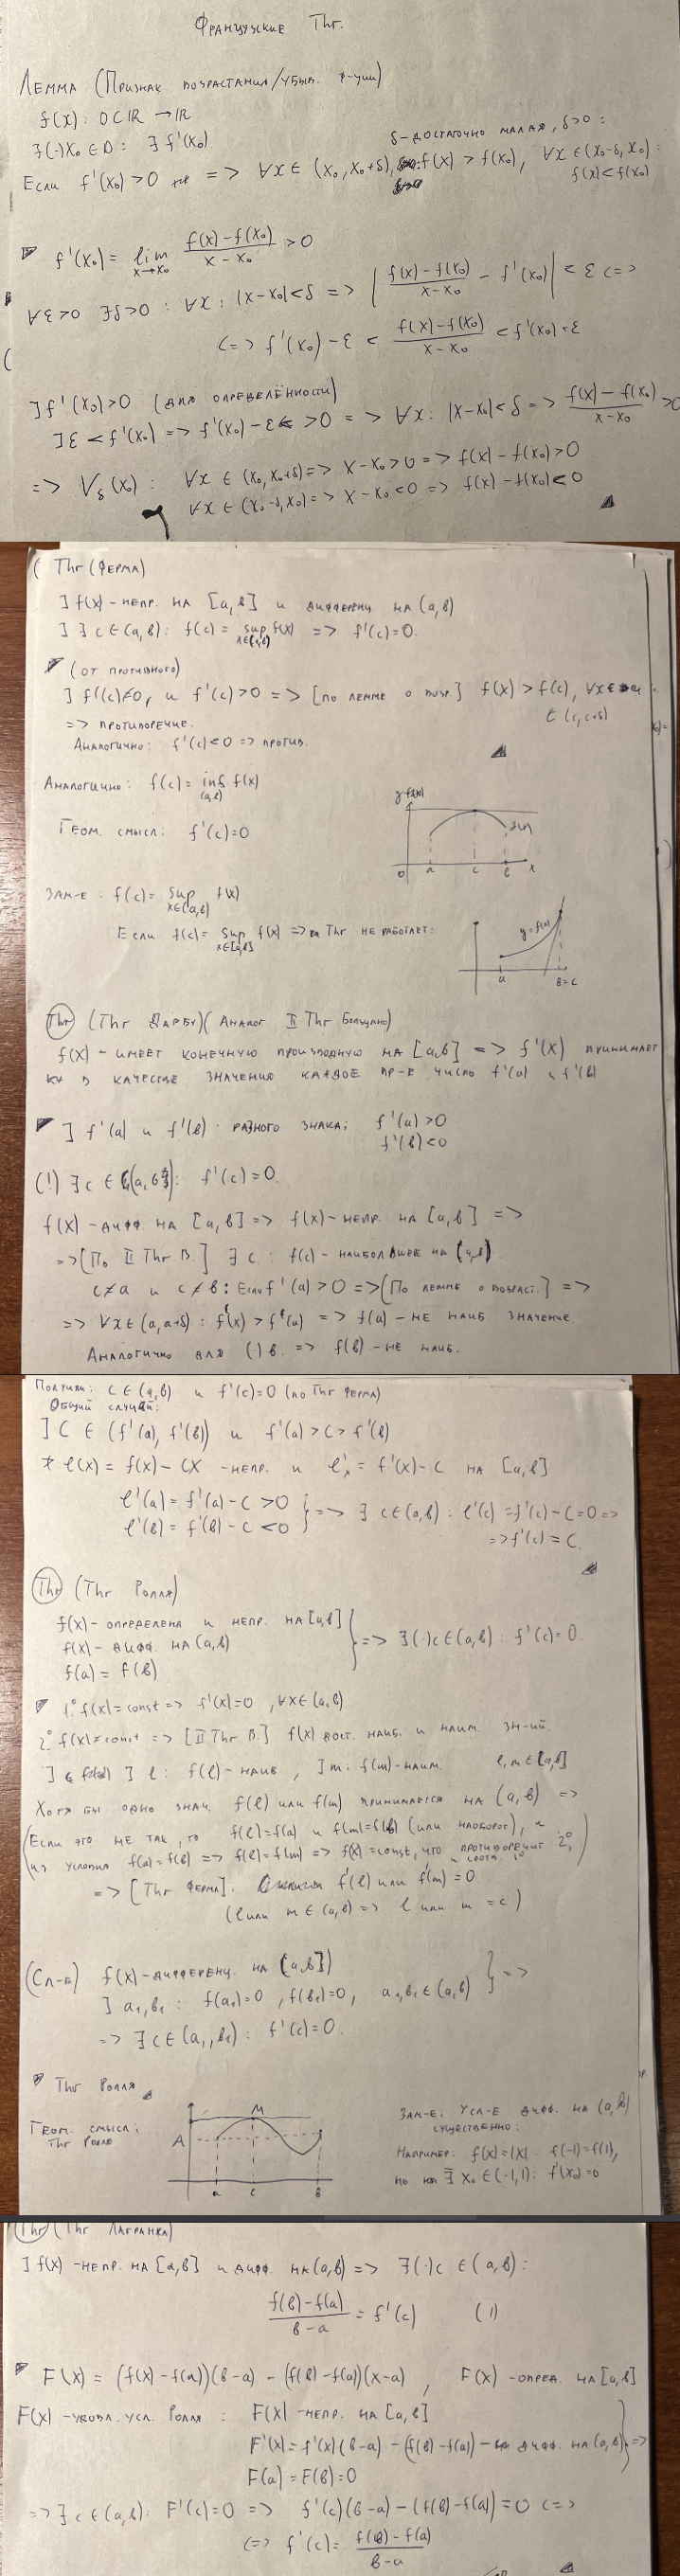 Французские Thr.
Лемма (Признак возрастания/убыв. ф-ции)
f(x): D⊂ℝ → ℝ
∃(·)x₀ ∈ D: ∃ f'(x₀). δ-достаточно малая, δ>0:
Если f'(x₀)>0 => ∀x∈(x₀, x₀+δ), f(x) > f(x₀), ∀x∈(x₀-δ, x₀):
f(x)<f(x₀)
f'(x₀) = lim_{x→x₀} (f(x)-f(x₀))/(x-x₀) >0
∀ε>0 ∃δ>0: ∀x: |x-x₀|<δ => |(f(x)-f(x₀))/(x-x₀) - f'(x₀)| < ε <=>
<=> f'(x₀)-ε < (f(x)-f(x₀))/(x-x₀) < f'(x₀)+ε
] f'(x₀)>0 (для определённости)
] ε < f'(x₀) => f'(x₀)-ε >0 => ∀x: |x-x₀|<δ => (f(x)-f(x₀))/(x-x₀) >0
=> V_δ(x₀): ∀x ∈ (x₀, x₀+δ) => x-x₀>0 => f(x)-f(x₀)>0
∀x ∈ (x₀-δ, x₀) => x-x₀<0 => f(x)-f(x₀)<0
Thr (Ферма)
] f(x)-непр. на [a,b] и дифференц. на (a,b)
] ∃ c∈(a,b): f(c) = sup_{x∈(a,b)} f(x) => f'(c)=0.
(от противного)
] f'(c)≠0, и f'(c)>0 => [по лемме о возр.] f(x)>f(c), ∀x∈
∈ (c, c+δ)
=> противоречие.
Аналогично: f'(c)<0 => против.
Аналогично: f(c) = inf_{(a,b)} f(x)
Геом. смысл: f'(c)=0
y=f(x)
f(x)
0 a c b x
Зам-е: f(c) = sup_{x∈(a,b)} f(x)
Если f(c) = sup_{x∈[a,b]} f(x) => Thr не работает:
y=f(x)
a b=c
Thr (Thr Дарбу) (Аналог II Thr Больцано)
f(x) - имеет конечную производную на [a,b] => f'(x) принимает
в качестве значения каждое пр-е число f'(a) и f'(b)
] f'(a) и f'(b) разного знака; f'(a)>0
f'(b)<0
(!) ∃c ∈ (a,b): f'(c)=0.
f(x)-дифф. на [a,b] => f(x)-непр. на [a,b] =>
=> [По II Thr В.] ∃ c: f(c)-наибольшее на [a,b].
c≠a и c≠b: Если f'(a)>0 => [По лемме о возраст.] =>
=> ∀x∈(a, a+δ): f(x)>f(a) => f(a)-не наиб. значение.
Аналогично для (·) b. => f(b)-не наиб.
Получили: c∈(a,b) и f'(c)=0 (по Thr Ферма)
Общий случай:
] C ∈ (f'(a), f'(b)) и f'(a)>C>f'(b)
* l(x) = f(x)-Cx -непр. и l'ₓ = f'(x)-C на [a,b]
l'(a) = f'(a)-C >0
l'(b) = f'(b)-C <0 } => ∃ c∈(a,b): l'(c)=f'(c)-C=0 =>
=> f'(c)=C.
Thr (Thr Ролля)
f(x)-определена и непр. на [a,b]
f(x)-дифф. на (a,b) } => ∃(·)c∈(a,b): f'(c)=0.
f(a) = f(b)
1.° f(x)=const => f'(x)=0, ∀x∈(a,b)
2.° f(x)≠const => [II Thr В.] f(x) дост. наиб. и наим. зн-ий.
] l: f(l)-наиб, ] m: f(m)-наим. l,m∈[a,b]
Хотя бы одно знач. f(l) или f(m) принимается на (a,b) =>
(Если это не так, то f(l)=f(a) и f(m)=f(b) (или наоборот), и
из условия f(a)=f(b) => f(l)=f(m) => f(x)=const, что противоречит 2.°)
и соотв. 1°
=> [Thr Ферма]. f'(l) или f'(m)=0
(l или m ∈(a,b) => l или m = c)
(Сл-е) f(x)-дифференц. на (a,b)
] a₁,b₁: f(a₁)=0, f(b₁)=0, a₁,b₁∈(a,b) } =>
=> ∃c∈(a₁,b₁): f'(c)=0.
Thr Ролля
Геом. смысл:
Thr Ролля
A M
a c b
Зам-е: Усл-е дифф. на (a,b)
существенно:
Например: f(x)=|x|: f(-1)=f(1),
но на ∃ x₀∈(-1,1): f'(x₀)=0
Thr (Thr Лагранжа)
] f(x)-непр. на [a,b] и дифф. на (a,b) => ∃(·)c ∈(a,b):
(f(b)-f(a))/(b-a) = f'(c) (1)
F(x) = (f(x)-f(a))(b-a) - (f(b)-f(a))(x-a), F(x) -опред. на [a,b]
F(x)-удовл. усл. Ролля: F(x)-непр. на [a,b]
F'(x) = f'(x)(b-a) - (f(b)-f(a)) - дифф. на (a,b) } =>
F(a)=F(b)=0
=> ∃c∈(a,b): F'(c)=0 => f'(c)(b-a)-(f(b)-f(a))=0 <=>
<=> f'(c) = (f(b)-f(a))/(b-a)